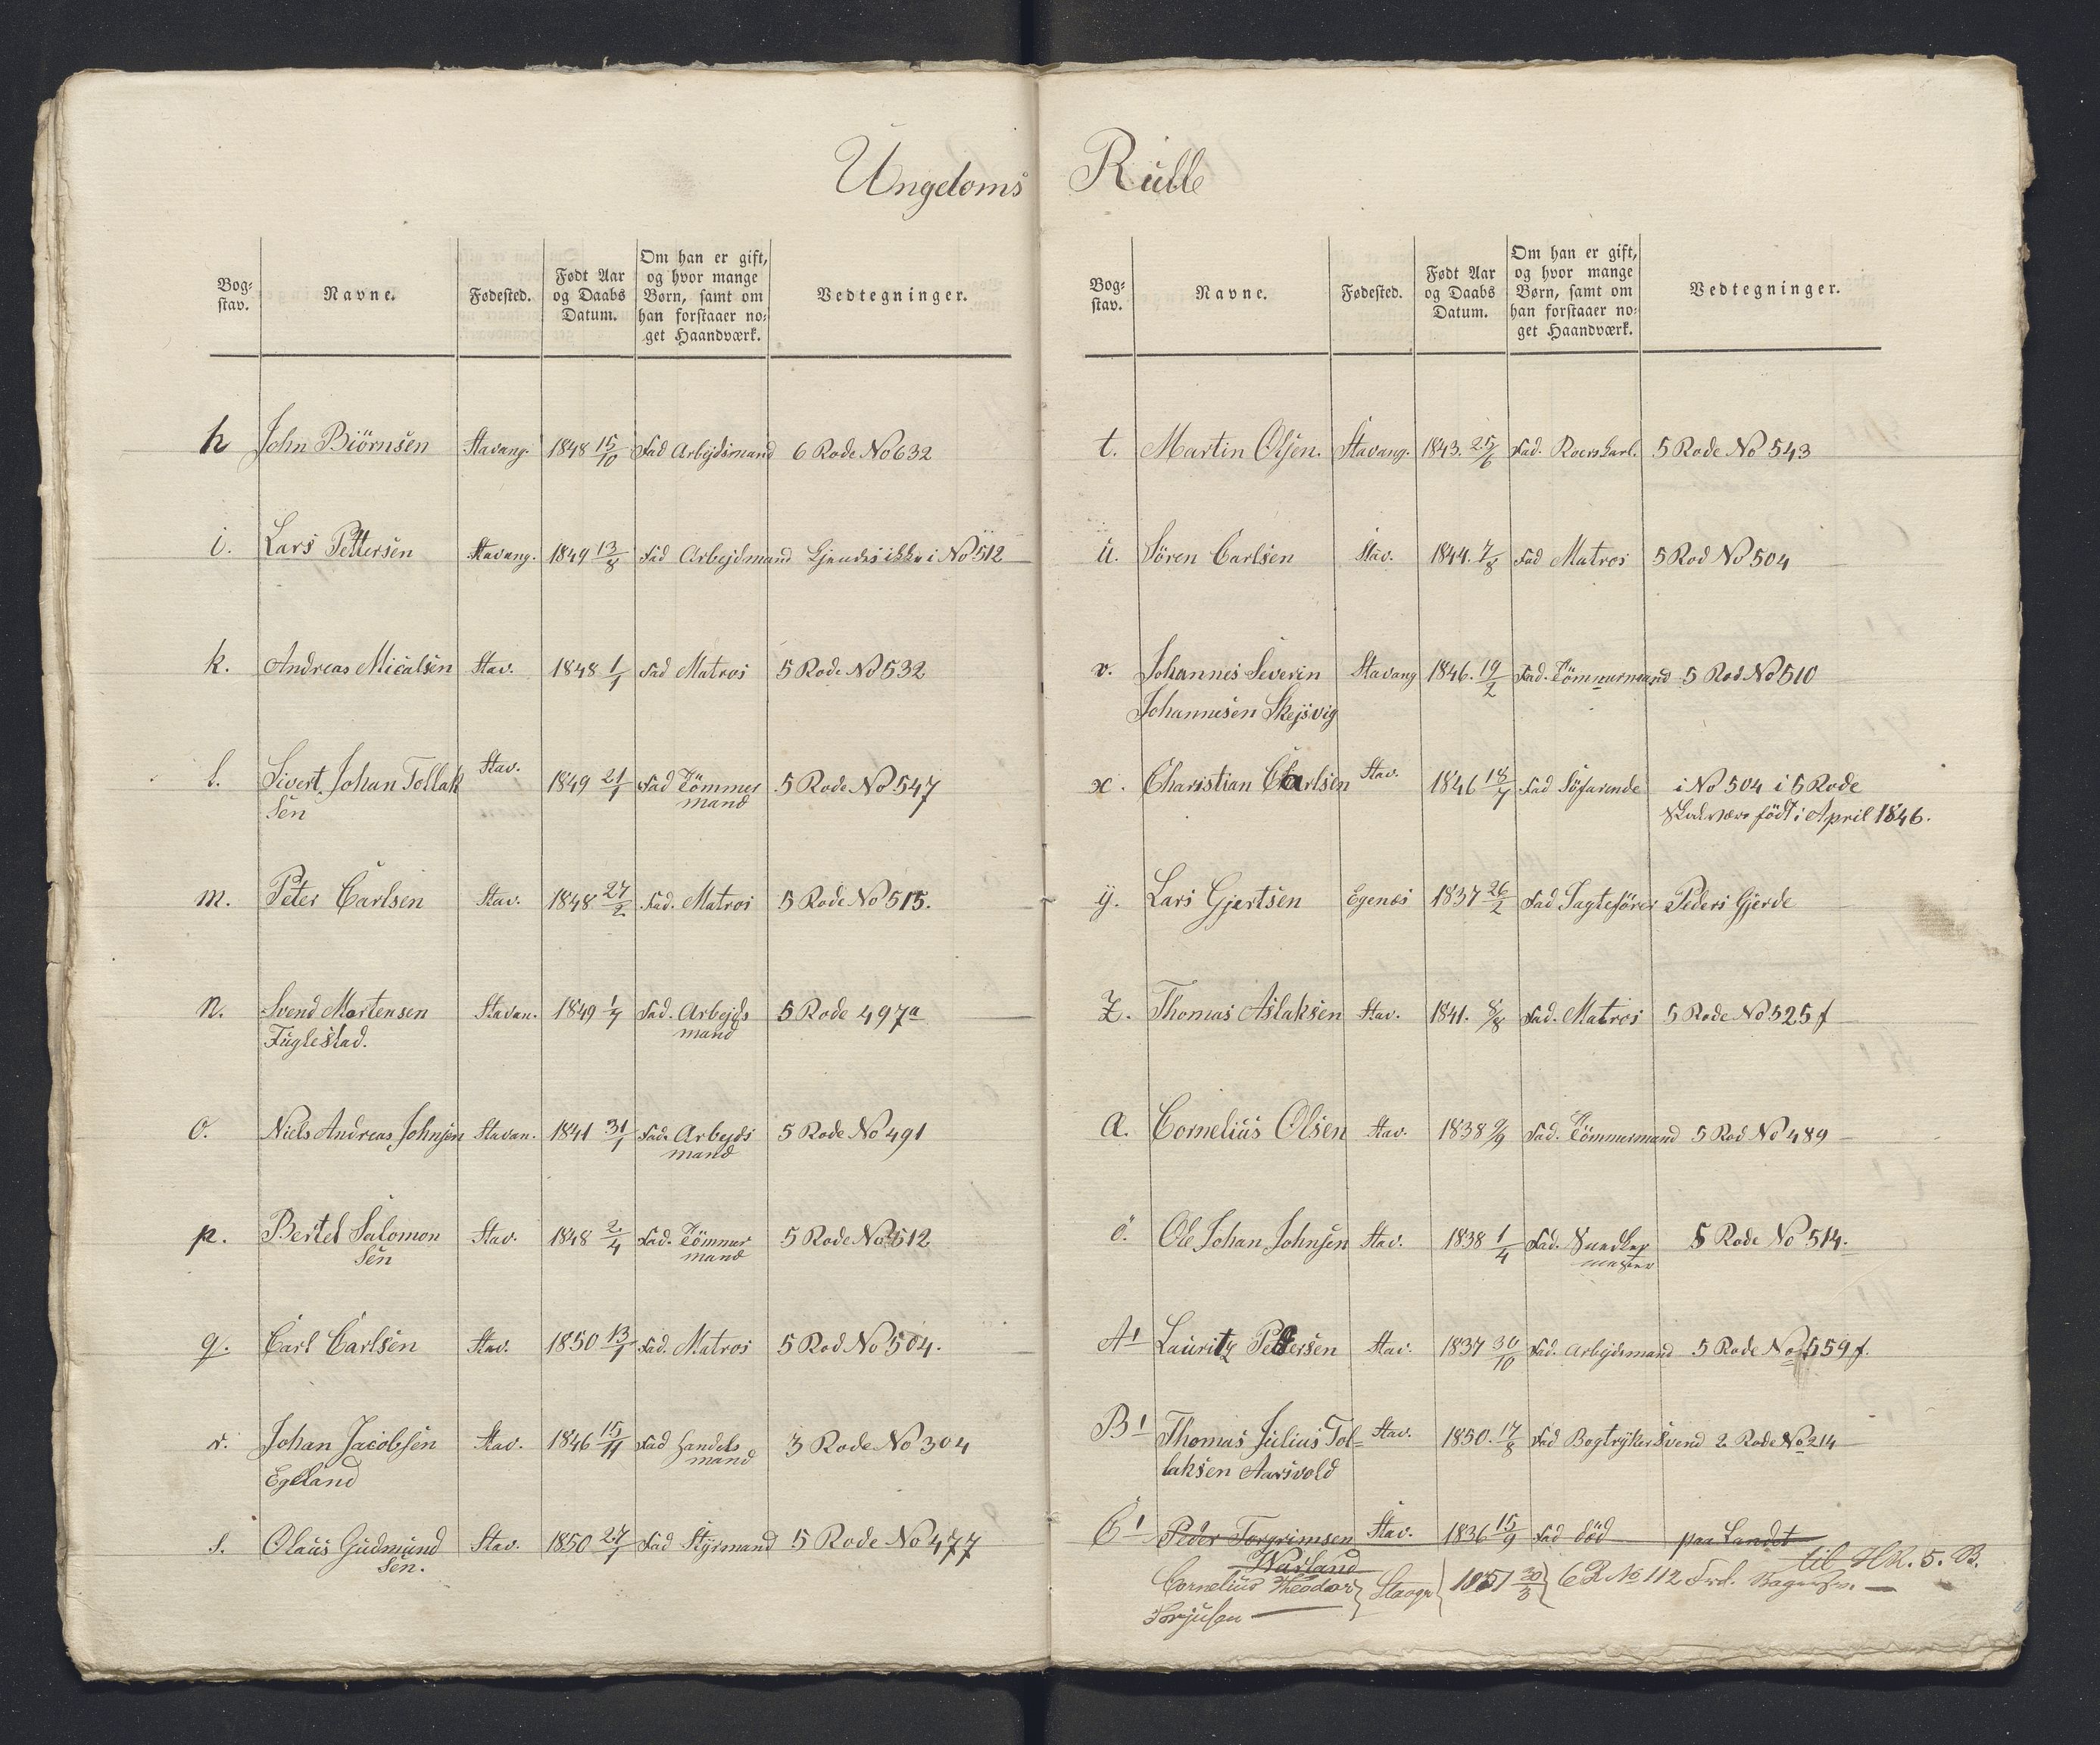 Ungdoms Rulle
Bog-
stav.
Navne.
Fødested.
Født Aar
og Daabs
Datum.
Om han er gift,
og hvor mange
Børn, samt om
han forstaaer no-
get Haandværk.
Vedtegninger.
h John Biörnsen Stavang. 1848 15/10 Fad Arbejdsmand 6 Rode No 632
i. Lars Pettersen Stavang. 1849 13/8 Fad Arbejdsmand Gjendes ikke i No 512
k. Andreas Micalsen Stav. 1848 1/1 Fad Matros 5 Rode No 532
l. Sivert Johan Tollak Stav. 1849 21/1 Fad Tömmer 5 Rode No 547
sen mand
m. Peter Carlsen Stav. 1848 27/2 Fad. Matros 5 Rode No 515.
n. Svend Mortensen Stavan. 1849 1/7 Fad. Arbejds 5 Rode 497a
Fuglestad. mand
o. Niels Andreas Johnsen Stavan. 1841 31/1 Fad. Arbejds 5 Rode No 491
mand
p. Bertel Salomon Stav. 1848 2/4 Fad. Tömmer 5 Rode No 512
sen mand
q. Carl Carlsen Stav. 1850 13/1 Fad. Matros 5 Rod No 504.
r. Johan Jacobsen Stav. 1846 15/11 Fad Handels 3 Rode No 304
Egeland mand
s. Olaus Gudmund Stav. 1850 27/1 Fad Styrmand 5 Rode No 477
sen.
Bog-
stav.
Navne.
Fødested.
Født Aar
og Daabs
Datum.
Om han er gift,
og hvor mange
Børn, samt om
han forstaaer no-
get Haandværk.
Vedtegninger.
t. Martin Olsen. Stavang. 1843. 25/6 Fad. Roerskarl. 5 Rode No 543
u. Sören Carlsen Stav. 1844. 7/8 Fad Matros 5 Rod No 504
v. Johannes Severin Stavang 1846. 19/2 Fad. Tömmermand 5 Rod. No 510
Johannesen Skejsvig
x. Charistian Charlsen Stav. 1846 18/7 Fad Söfarende i No 504 i 5 Rode
Skal være födt i April 1846.
y. Lars Gjertsen Egenes 1837 26/2 Fad Jagtefören Peders Gjerde
z. Thomas Aslaksen Stav. 1841. 8/8 Fad. Matros 5 Rode No 525 f
a. Cornelius Olsen Stav. 1838 9/9 Fad. Tömmermand 5 Rod No 489
ö. Ole Johan Johnsen Stav. 1838 1/4 Fad. 5 Rode No 514.
A1 Lauritz Pettersen Stav. 1837 30/10 Fad. Arbejdsmand 5 Rode No 559 f.
B1 Thomas Julius Tol- Stav. 1850. 17/8 Fad Bogtrykersvend 2 Rode No 214
laksen Aarsvold
C1 Peder Torgrimsen Stav. 1836 15/9 Fad död paa Landet
Warland til HR. 5. B.
Cornelius Theodor Stavgr 1851 30/3 6 R No 112 Fad.
Torjusen